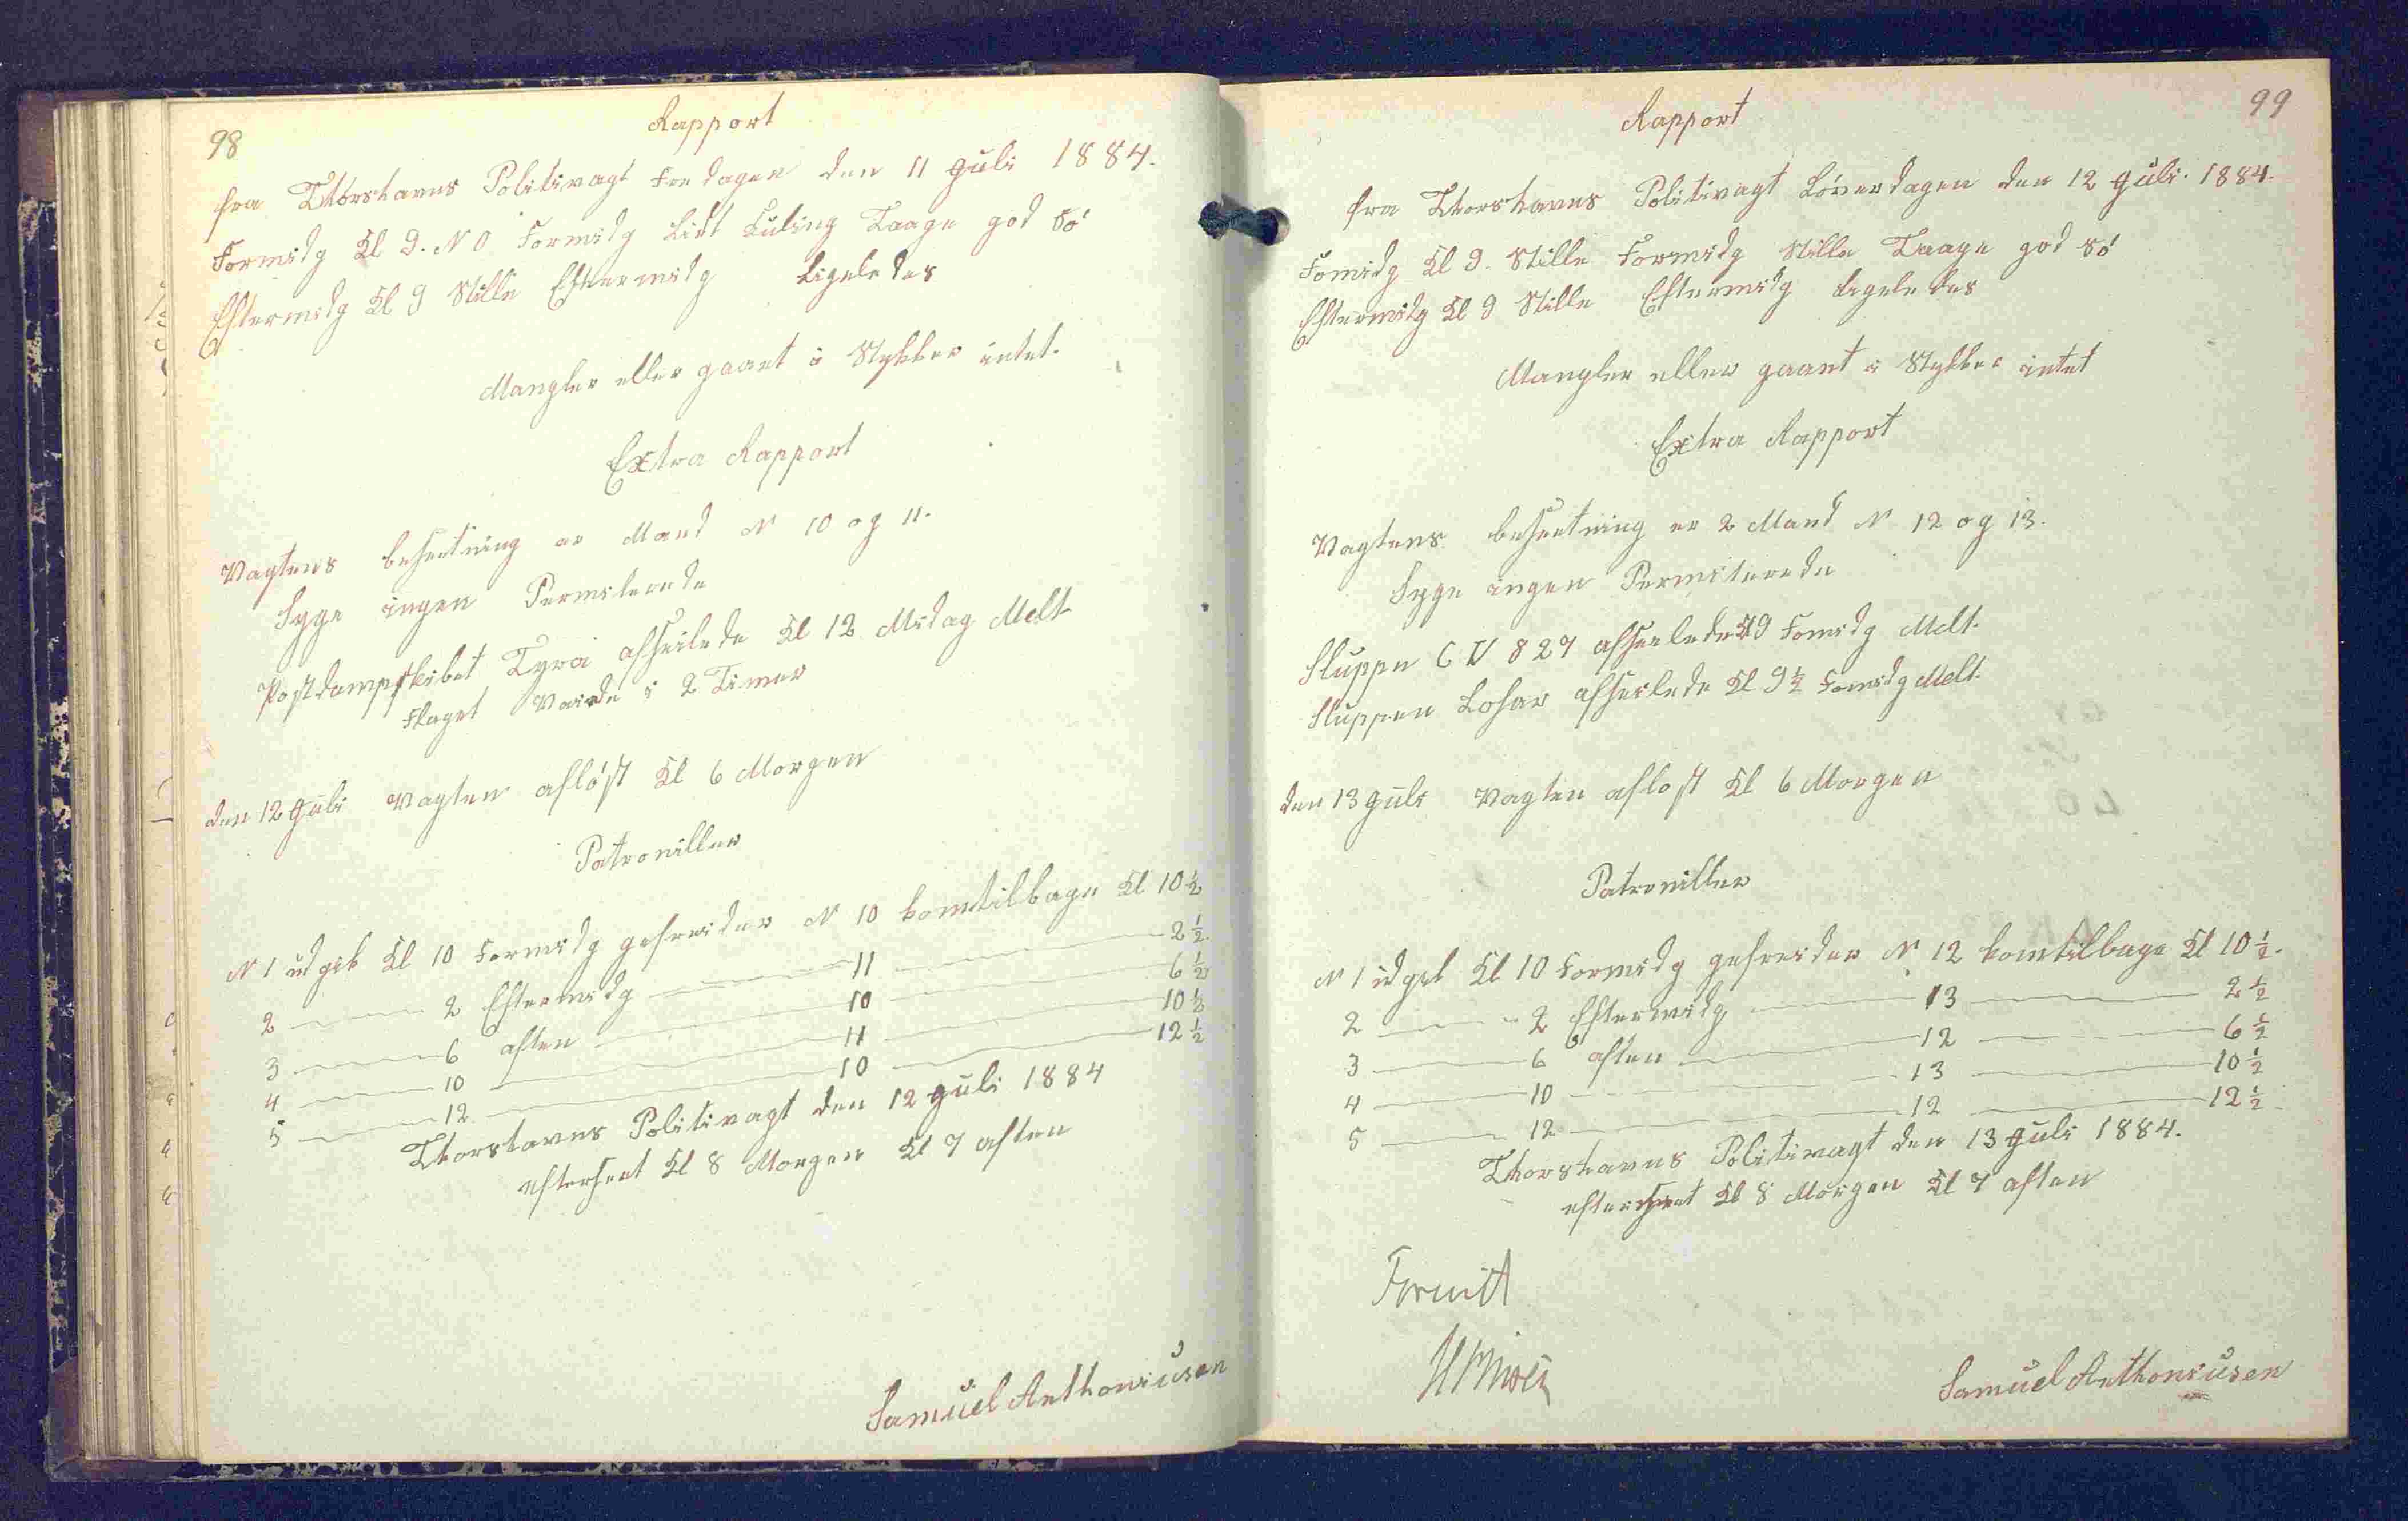 98
Rapport
fra Thorshavns Politivagt Fredagen den 11 Juli 1884.
Formidg Kl 9. N O Formidg Lidt Kuling Taage god Sö
Eftermidg Kl 9 Stille Eftermidg Ligeledes
Mangler eller gaaet i Stykker intet.
Extra Rapport
Vagtens besætning er Mand N 10 og 11.
Syge ingen Permiterede
Postdampskibet Tyra afseilede Kl 12 Midag Melt
Flaget Vaiede i 2 Timer
den 12 Juli Vagten aflöst Kl 6 Morgen
Patroviller
N 1 udgik Kl 10 Formidg gefreider N 10 komtilbage Kl 10½
2 — 2 Eftermidg — 11 — 2½
3 — 6 aften — 10 — 6½
4 — 10 — 11 — 10½
5 — 12 — 10 — 12½
Thorshavns Politivagt den 12 Juli 1884
efterseet Kl 8 Morgen Kl 7 aften
Samuel Anthoniusen
99
Rapport
fra Thorshavns Politivagt Löverdagen den 12 Juli. 1884.
Fomidg Kl 9. Stille Formidg Stille Taage god Sö
Eftermidg Kl 9 Stille Eftermidg Ligeledes
Mangler eller gaaet i Stykker intet
Extra Rapport
Vagtens besætning er 2 Mand N 12 og 13.
Syge ingen Permiterede
Sluppe 827 afseilede Kl 9 Fomidg Melt.
Sluppen afseilede Kl 9½ Fomidg Melt.
den 13 Juli Vagten aflost Kl 6 Morgen
Patroviller
N 1 udgik Kl 10 Formidg gefreider N 12 komtilbage Kl 10½.
2 — 2 Eftermidg — 13 — 2½
3 — 6 aften — 12 — 6½
4 — 10 — 13 — 10½
5 — 12 — 12 — 12½
Thorshavns Politivagt den 13 Juli 1884.
efterseet Kl 8 Morgen Kl 7 aften
Samuel Anthoniusen